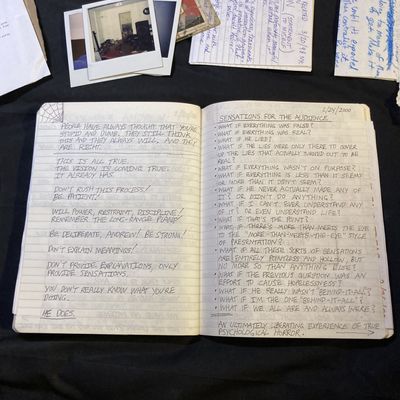 PEOPLE HAVE ALWAYS THOUGHT THAT YOU'RE
STUPID AND DUMB. THEY STILL THINK
THIS AND THEY ALWAYS WILL. AND THEY
ARE RIGHT.
THIS IS ALL TRUE.
THE VISION IS COMING TRUE.
IT ALREADY HAS.
DON'T RUSH THIS PROCESS!
BE PATIENT!
WILL POWER, RESTRAINT, DISCIPLINE!
REMEMBER THE LONG-RANGE PLANS!
BE DELIBERATE, ANDREW! BE STRONG!
DON'T EXPLAIN MEANINGS!
DON'T PROVIDE EXPLANATIONS, ONLY
PROVIDE SENSATIONS.
YOU DON'T REALLY KNOW WHAT YOU'RE
DOING.
HE DOES.
1/24/2000
SENSATIONS FOR THE AUDIENCE
• WHAT IF EVERYTHING WAS FALSE?
• WHAT IF EVERYTHING WAS REAL?
• WHAT IF HE LIED?
• WHAT IF THE LIES WERE ONLY THERE TO COVER
UP THE LIES THAT ACTUALLY TURNED OUT TO BE
REAL?
• WHAT IF EVERYTHING WASN'T ON PURPOSE?
• WHAT IF EVERYTHING IS LESS THAN IT SEEMS
OR MORE THAN IT DIDN'T SEEM?
• WHAT IF HE NEVER ACTUALLY MADE ANY OF
IT? OR DIDN'T DO ANYTHING?
• WHAT IF I CAN'T EVER UNDERSTAND ANY
OF IT? OR EVEN UNDERSTAND LIFE?
• WHAT IF THAT'S THE POINT?
• WHAT IF THERE'S MORE THAN MEETS THE EYE
IN THE "MORE-THAN-MEETS-THE-EYE" STYLE
OF PRESENTATION?
• WHAT IF ALL THESE SORTS OF SENSATIONS
ARE ENTIRELY POINTLESS AND HOLLOW, BUT
NO MORE SO THAN ANYTHING ELSE?
• WHAT IF THE PREVIOUS QUESTION WAS AN
EFFORT TO CAUSE HOPELESSNESS?
• WHAT IF HE REALLY WASN'T "BEHIND-IT-ALL"?
• WHAT IF I'M THE ONE "BEHIND-IT-ALL"?
• WHAT IF WE ALL ARE AND ALWAYS WERE?
AN ULTIMATELY LIBERATING EXPERIENCE OF TRUE
PSYCHOLOGICAL HORROR.